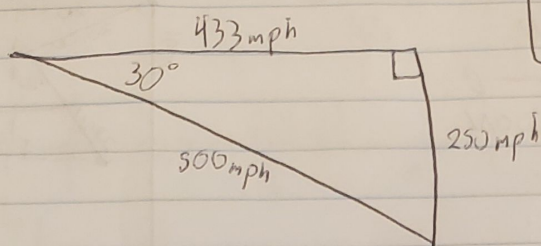 433mph
30°
250mph
500mph